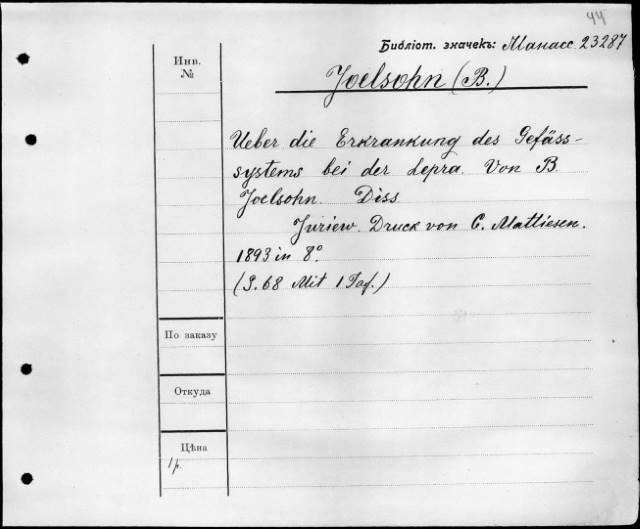 44
Библiот. значекъ: Манасс. 23287
Инв.
№
Joelsohn (B.)
Ueber die Erkrankung des Gefäss-
systems bei der Lepra. Von B
Joelsohn. Diss
Juriew. Druck von C. Mattiesen.
1893 in 8°.
(S. 68 Mit 1 Taf.)
По заказу
Откуда
Цѣна
1 р.